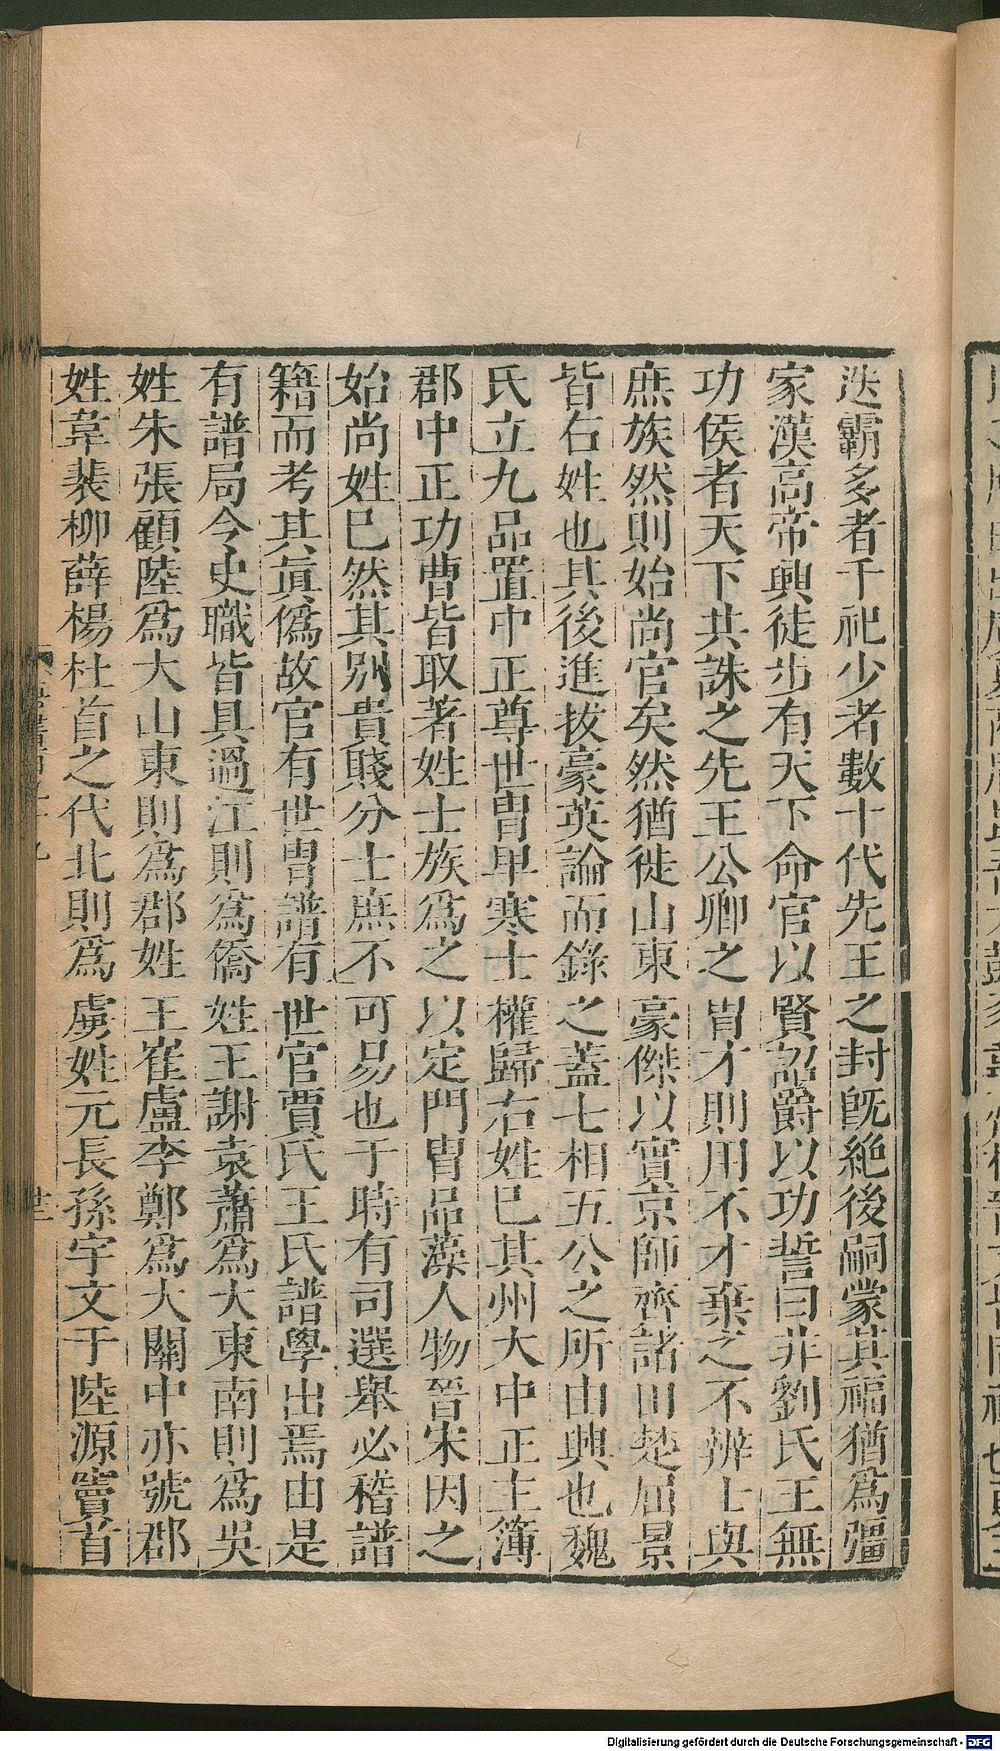 迭霸多者千祀少者數十代先王之封旣絕後嗣蒙其福猶爲彊
家漢高帝興徒步有天下命官以賢詔爵以功誓曰非劉氏王無
功侯者天下共誅之先王公卿之胄才則用不才棄之不辨士與
庶族然則始尚官矣然猶徙山東豪傑以實京師齊諸田楚屈景
皆右姓也其後進拔豪英論而錄之蓋七相五公之所由興也魏
氏立九品置中正尊世胄卑寒士權歸右姓巳其州大中正主簿
郡中正功曹皆取著姓士族爲之以定門胄品藻人物晉宋因之
始尚姓巳然其別貴賤分士庶不可易也于時有司選舉必稽譜
籍而考其眞僞故官有世胄譜有世官賈氏王氏譜學出焉由是
有譜局令史職皆具過江則爲僑姓王謝袁蕭爲大東南則爲吳
姓朱張顧陸爲大山東則爲郡姓王崔盧李鄭爲大關中亦號郡
姓韋裴柳薛楊杜首之代北則爲虜姓元長孫宇文于陸源竇首
Digitalisierung gefördert durch die Deutsche Forschungsgemeinschaft - DFG